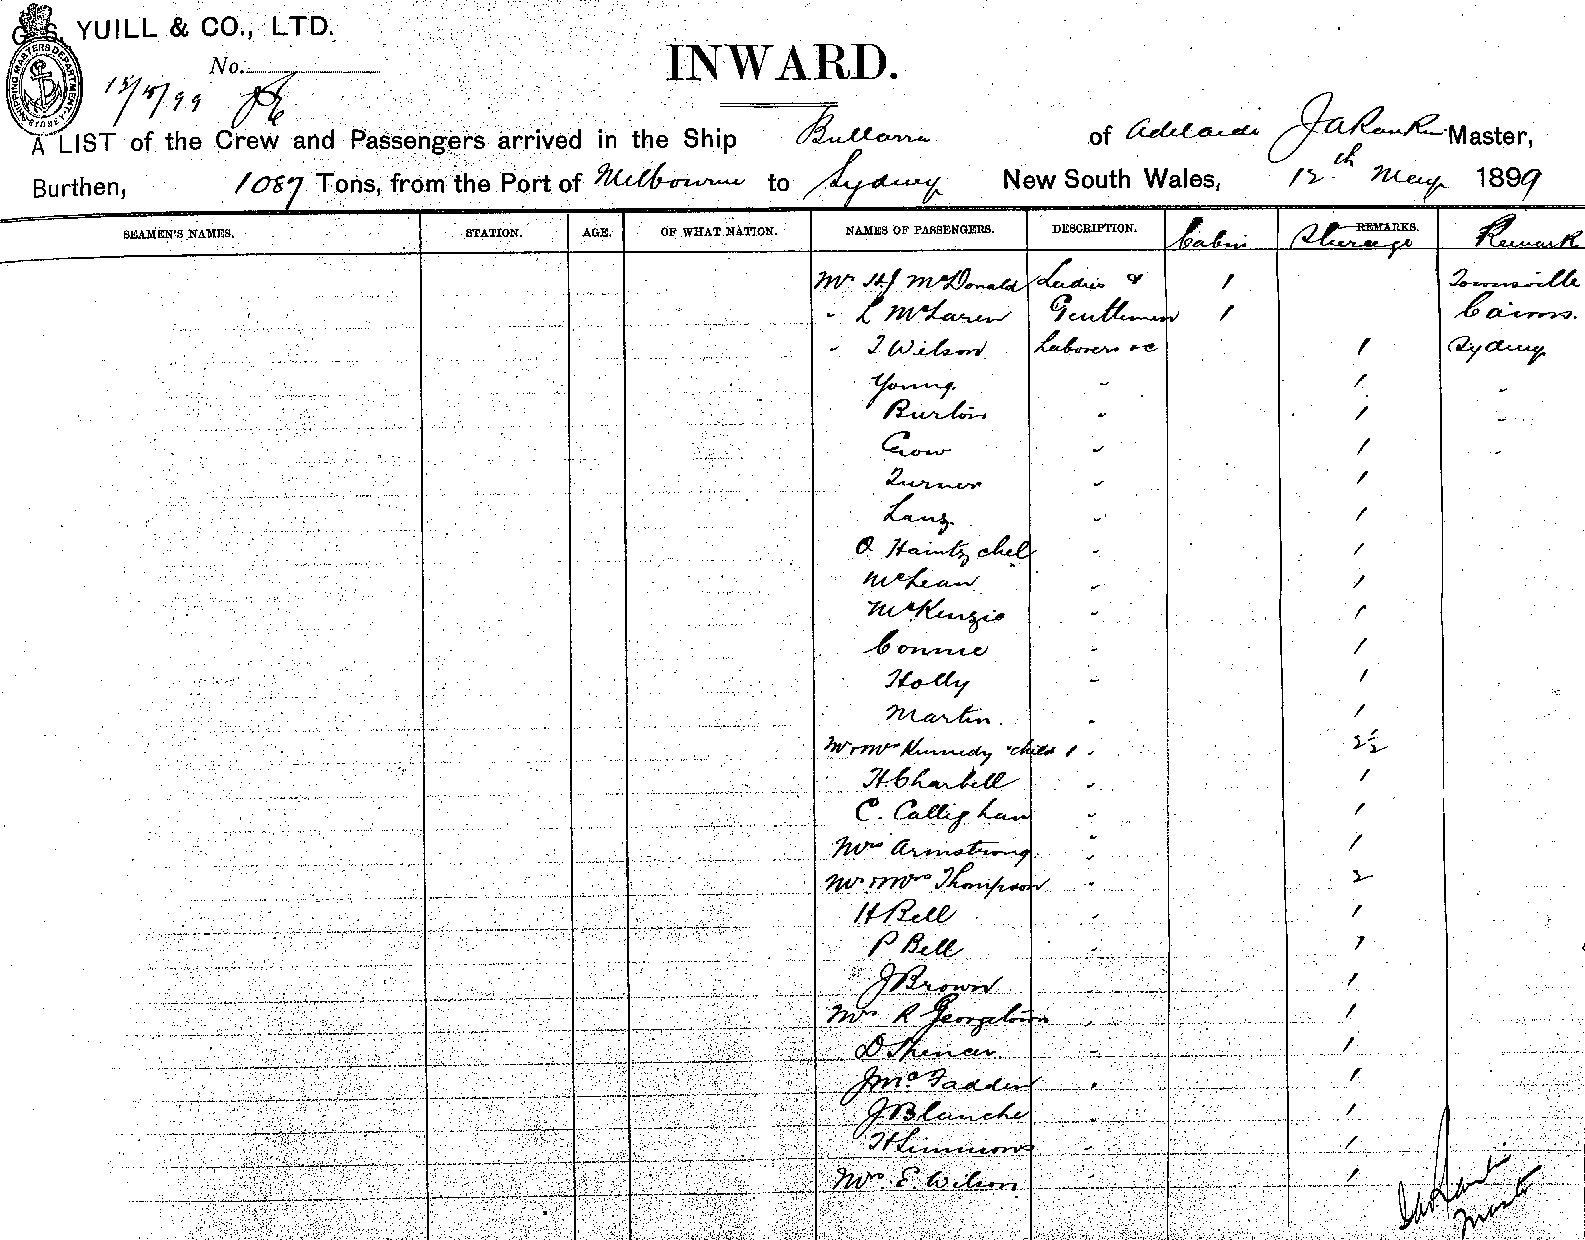 G. S. YUILL & CO., LTD.
No.
15/5/99
INWARD.
A LIST of the Crew and Passengers arrived in the Ship Bullarra of Adelaide J A Rankin Master,
Burthen, 1087 Tons, from the Port of Melbourne to Sydney New South Wales, 12th May 1899
SEAMEN'S NAMES. STATION. AGE. OF WHAT NATION. NAMES OF PASSENGERS. DESCRIPTION. Cabin REMARKS. Steerage Remark
Mr H J McDonald Ladies & 1 Townsville
" L McLaren Gentlemen 1 Cairns.
" T Wilson Laborers &c 1 Sydney
Young " 1 "
Burton " 1 "
Crow " 1 "
Turner " 1
Lang " 1
O Haintzchel " 1
McLean " 1
McKenzie " 1
Connie " 1
Holly " 1
Martin " 1
Mr & Mrs Kennedy & child 1 " 2½
H Charbell " 1
C. Callighan " 1
Mrs Armstrong " 1
Mr & Mrs Thompson " 2
H Bell " 1
P Bell " 1
J Brown 1
Mrs R Georgetown " 1
D Spencer " 1
J McFadden " 1
J Blanche " 1
H Simmons " 1
Mrs E. Wilson " 1